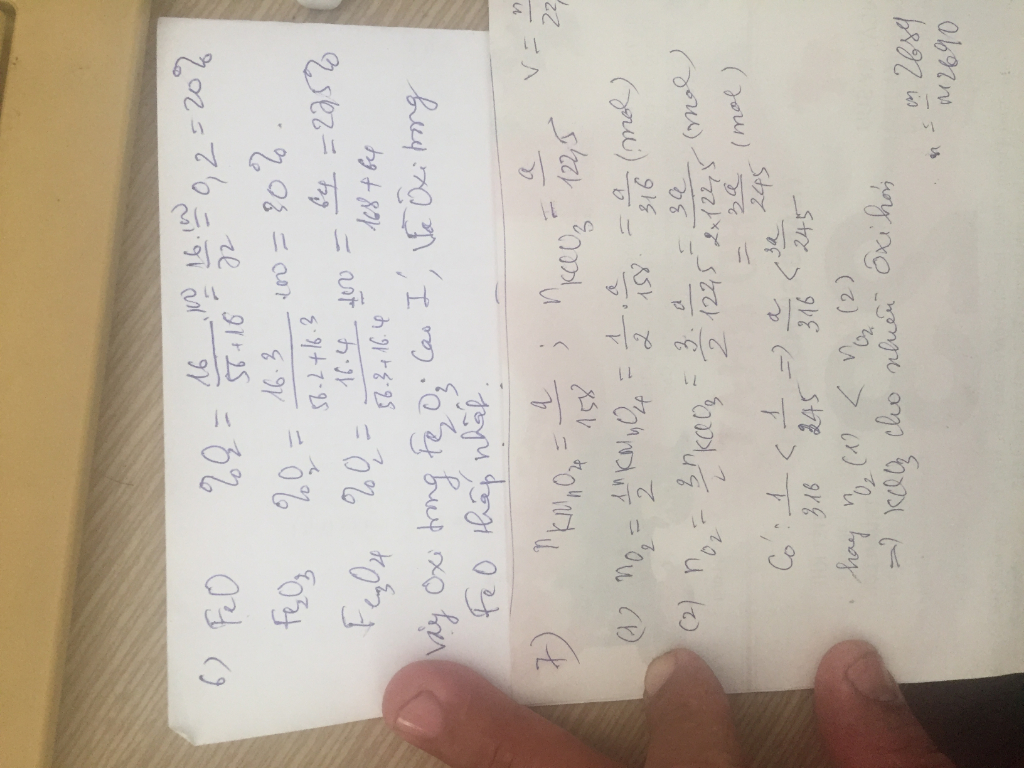 6) FeO %O2 = 16/(56+16) .100 = 16.100/72 = 0,2 = 20%
Fe2O3 %O2 = 16.3/(56.2+16.3) .100 = 30%.
Fe3O4 %O2 = 16.4/(56.3+16.4) .100 = 64/(168+64) = 27,5%
Vậy Oxi trong Fe2O3 Cao I', và Oxi trong
FeO thấp nhất.
7) nKMnO4 = a/158 ; nKClO3 = a/122,5 V = n/22,
(1) nO2 = 1/2 nKMnO4 = 1/2 . a/158 = a/316 (mol)
(2) nO2 = 3/2 nKClO3 = 3/2 . a/122,5 = 3a/(2x122,5) (mol)
= 3a/245 (mol)
Có: 1/316 < 1/245 => a/316 < 3a/245
hay nO2 (1) < nO2 (2)
=> KClO3 cho nhiều Oxi hơn